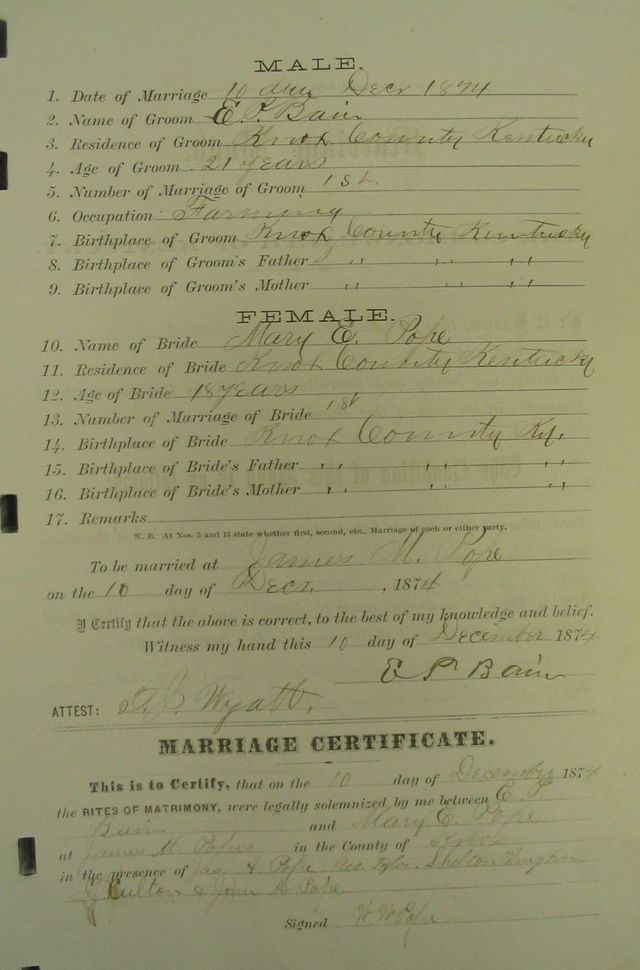 MALE.
1. Date of Marriage 10 Decr 1874
2. Name of Groom E. P. Bain
3. Residence of Groom Knox County Kentucky
4. Age of Groom 21 years
5. Number of Marriage of Groom 1st.
6. Occupation Farming
7. Birthplace of Groom Knox County Kentucky
8. Birthplace of Groom's Father " " "
9. Birthplace of Groom's Mother " " "
FEMALE.
10. Name of Bride Mary E. Pope
11. Residence of Bride Knox County Kentucky
12. Age of Bride 18 years
13. Number of Marriage of Bride 1st
14. Birthplace of Bride Knox County Ky.
15. Birthplace of Bride's Father " " "
16. Birthplace of Bride's Mother " " "
17. Remarks
N. B. At Nos. 5 and 13 state whether first, second, etc., Marriage of each or either party.
To be married at James M. Pope
on the 10 day of Decr. , 1874
I Certify that the above is correct, to the best of my knowledge and belief.
Witness my hand this 10 day of December 1874
E P Bain
ATTEST: Wyatt.
MARRIAGE CERTIFICATE.
This is to Certify, that on the 10 day of December 1874
the RITES OF MATRIMONY, were legally solemnized by me between E. P
Bain and Mary E. Pope
at James M. Popes in the County of Knox
in the presence of Jas. A Pope Geo. Tyler. Shelton
& John Pope
Signed W W Pope